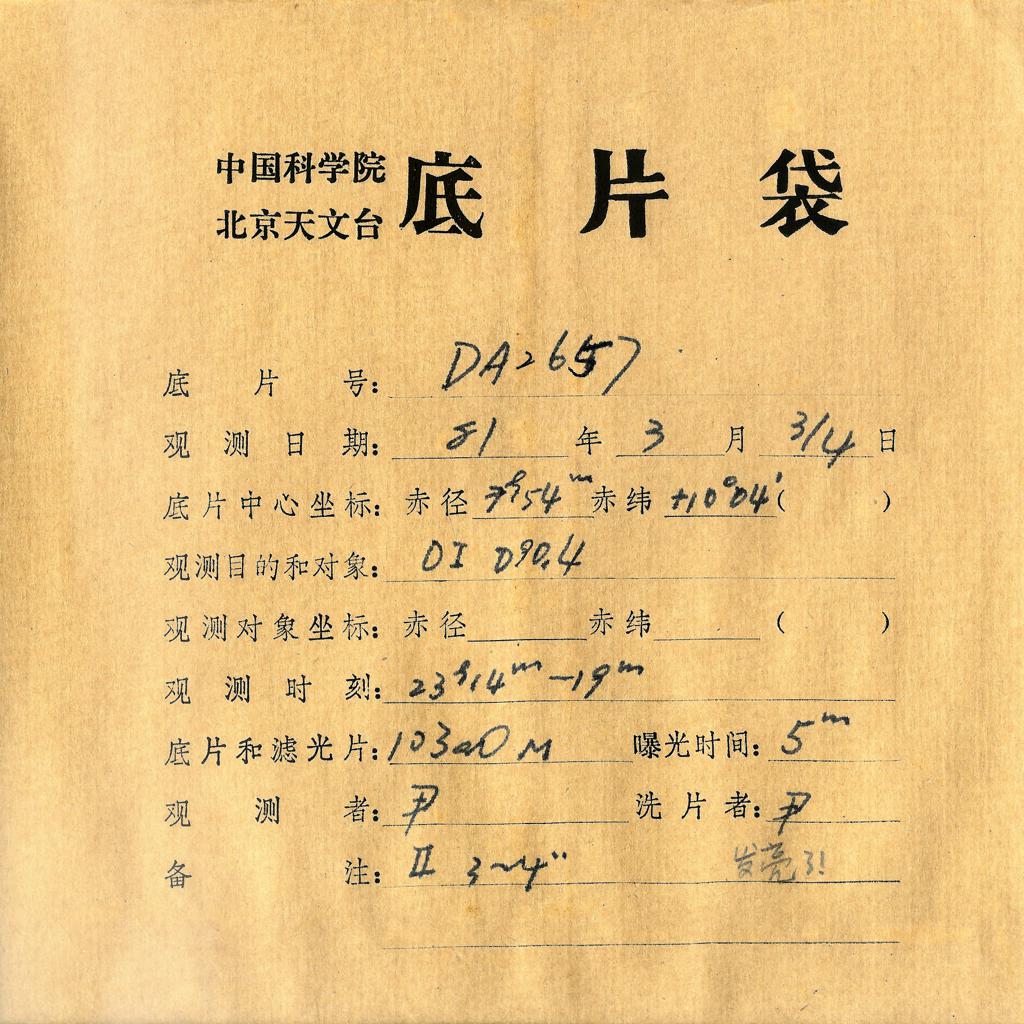 中国科学院
北京天文台
底片袋
底片号：DA2657
观测日期：81年3月3/4日
底片中心坐标：赤径 7ʰ54ᵐ 赤纬 +10°04′（ ）
观测目的和对象：OI 090.4
观测对象坐标：赤径 赤纬 （ ）
观测时刻：23ʰ14ᵐ—19ᵐ
底片和滤光片：103aO M 曝光时间：5ᵐ
观测者：尹 洗片者：尹
备注：II 3~4″ 发亮了!